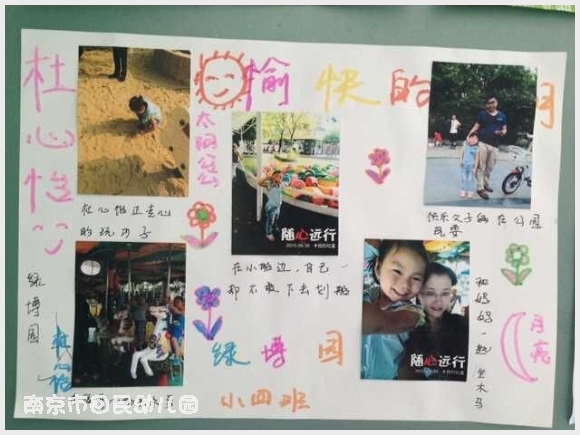 杜心怡
愉快的
太阳公公
杜心怡正专心
的玩沙子
随心远行
在小船边，自己一
却不敢下去划船
快乐父子俩在公园
玩耍
随心远行
和妈妈一起坐木马
月亮
绿博园
杜心怡
绿博园
小四班
南京市回民幼儿园